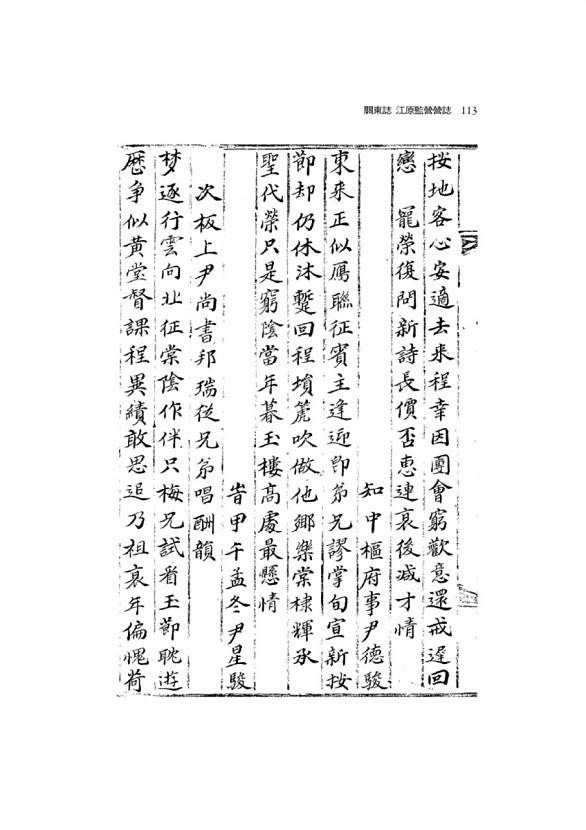 關東誌 江原監營營誌 113
按地客心安適去來程幸因團會窮歡意還戒遲回
戀 寵榮復問新詩長價否惠連衰後減才情
知中樞府事尹德駿
東來正似鴈聯征賓主逢迎卽弟兄謬掌旬宣新按
節却仍休沐蹔回程塤箎吹做他鄕樂棠棣輝承
聖代榮只是窮陰當年暮玉樓高處最懸情
旹甲午孟冬尹星駿
次板上尹尙書邦瑞從兄弟唱酬韻
梦逐行雲向北征棠陰作伴只梅兄試看玉節耽遊
歷爭似黃堂督課程異績敢思追乃祖衰年偏愧荷